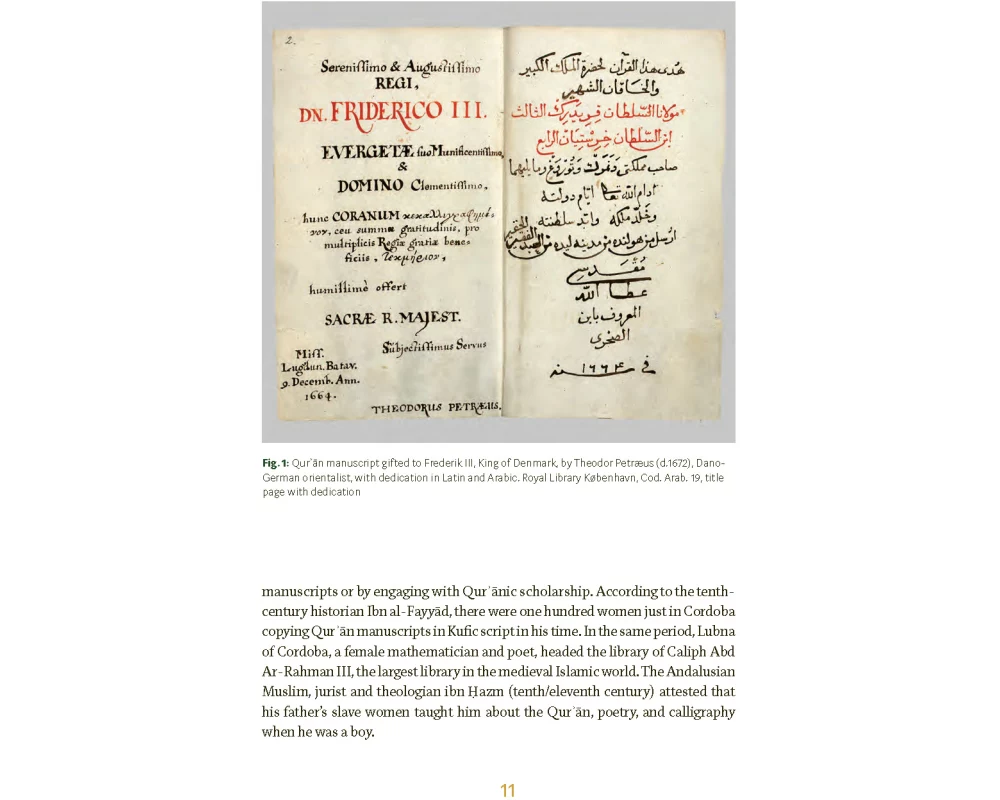 2.
Sereniſſimo & Auguſtiſſimo
REGI,
DN. FRIDERICO III.
EVERGETÆ suo Munificentiſſimo,
&
DOMINO Clementiſſimo,
hunc CORANUM κεκαλλιγραφημέ-
νον, ceu summæ gratitudinis, pro
multiplicis Regiæ gratiæ bene-
ficiis, τεκμήριον,
humillimè offert
SACRÆ R. MAJEST.
Subjectiſſimus Servus
Miſſ.
Lugdun. Batav.
9. Decemb. Ann.
1664.
THEODORUS PETRÆUS.
هدى هذا القرآن لحضرة الملك الكبير
والخاقان الشهير
مولانا السلطان فريدرك الثالث
ابن السلطان خرستيان الرابع
صاحب مملكتي دنمرك ونوروغ وما يليهما
ادام الله تعالى ايام دولته
وخلد ملكه وابد سلطنته
ارسل من هولنده من مدينه ليده من العبد الفقير الحقير
مقدسي
عطا الله
المعروف بابن
الصخري
في ١٦٦٤ سنه
Fig. 1: Qurʾān manuscript gifted to Frederik III, King of Denmark, by Theodor Petræus (d.1672), Dano-
German orientalist, with dedication in Latin and Arabic. Royal Library København, Cod. Arab. 19, title
page with dedication
manuscripts or by engaging with Qurʾānic scholarship. According to the tenth-
century historian Ibn al-Fayyād, there were one hundred women just in Cordoba
copying Qurʾān manuscripts in Kufic script in his time. In the same period, Lubna
of Cordoba, a female mathematician and poet, headed the library of Caliph Abd
Ar-Rahman III, the largest library in the medieval Islamic world. The Andalusian
Muslim, jurist and theologian ibn Ḥazm (tenth/eleventh century) attested that
his father’s slave women taught him about the Qurʾān, poetry, and calligraphy
when he was a boy.
11